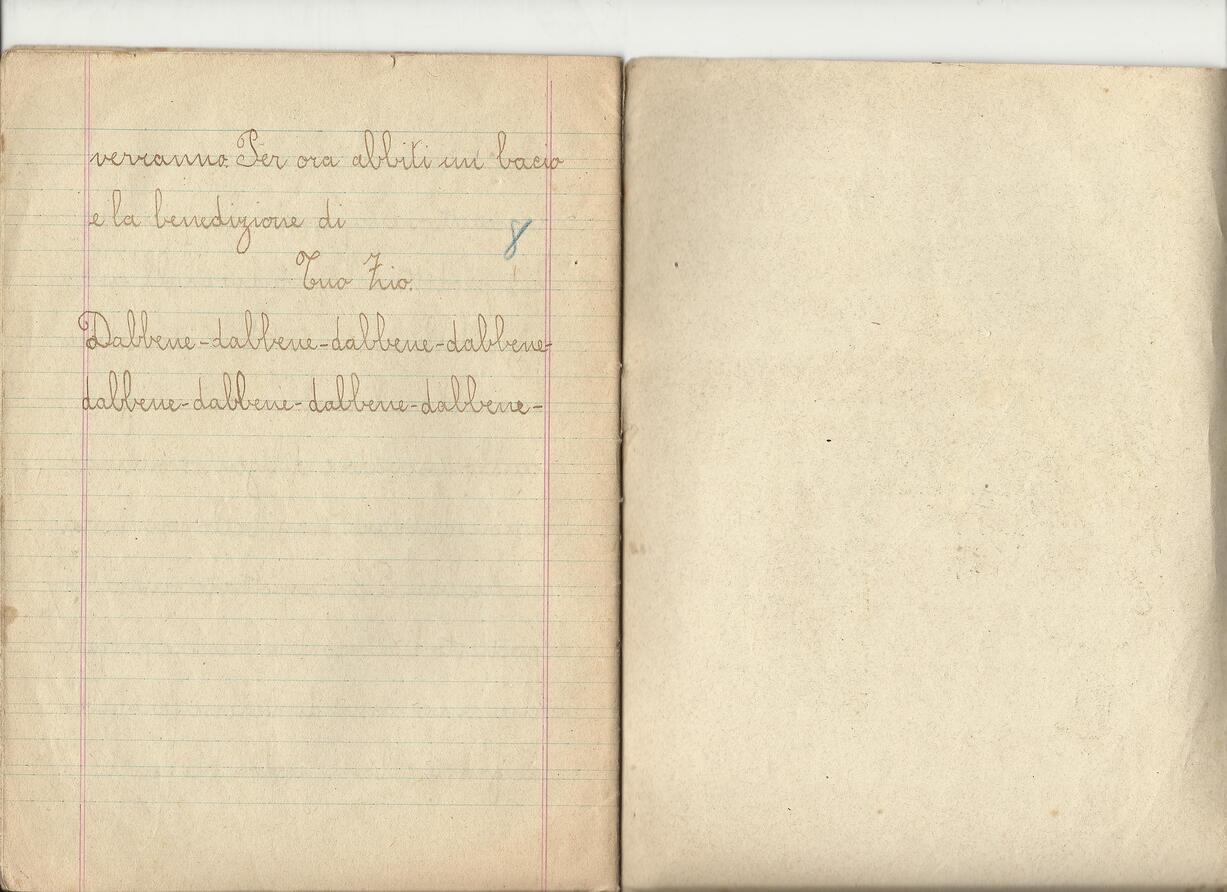 verranno. Per ora abbiti un bacio
e la benedizione di
8
Tuo Zio.
Dabbene-dabbene-dabbene-dabbene-
dabbene-dabbene-dabbene-dabbene-